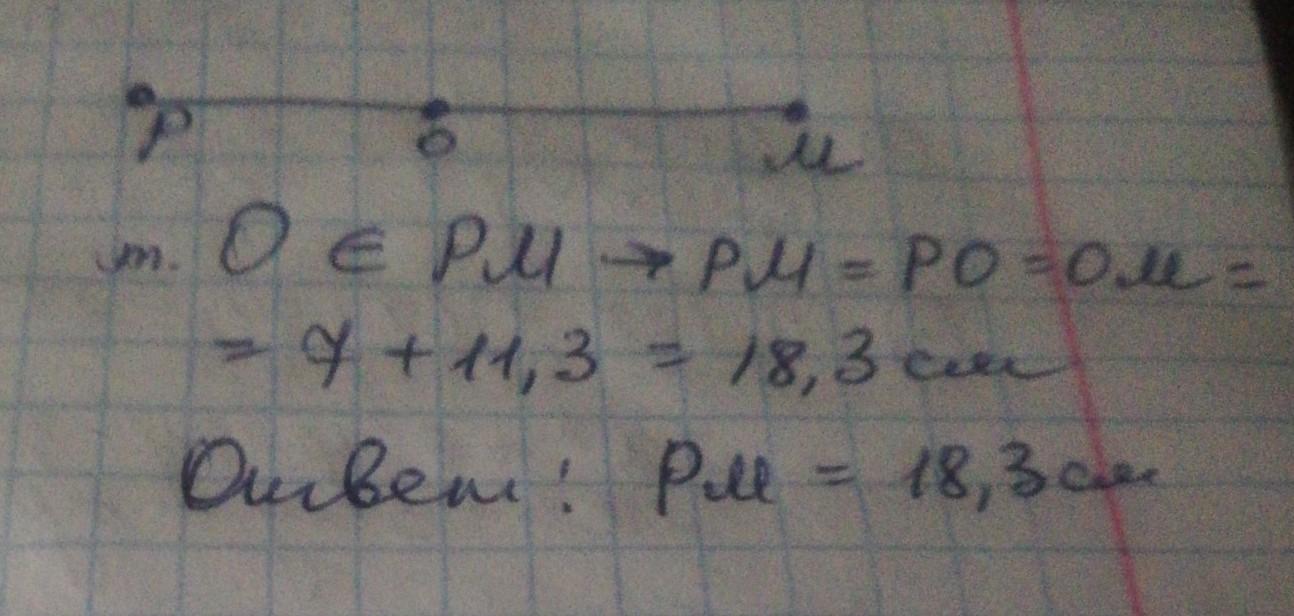 P O M
т. O ∈ PM → PM = PO = OM =
= 7 + 11,3 = 18,3 см
Ответ: PM = 18,3 см